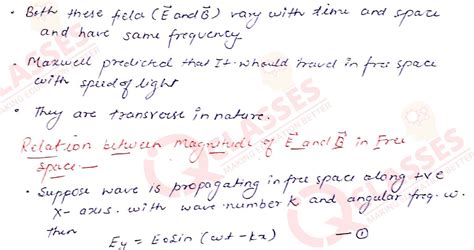 • Both these field (E⃗ and B⃗) vary with time and space
and have same frequency
• Maxwell predicted that It should travel in free space
with speed of light
• They are transverse in nature.
Relation between Magnitude of E⃗ and B⃗ in Free
Space:—
• Suppose wave is propagating in free space along +ve
X-axis. with wave number k and angular freq. ω.
then
Ey = E0 sin (ωt – kx) — ①
CLASSES
CLASSES
CLASSES